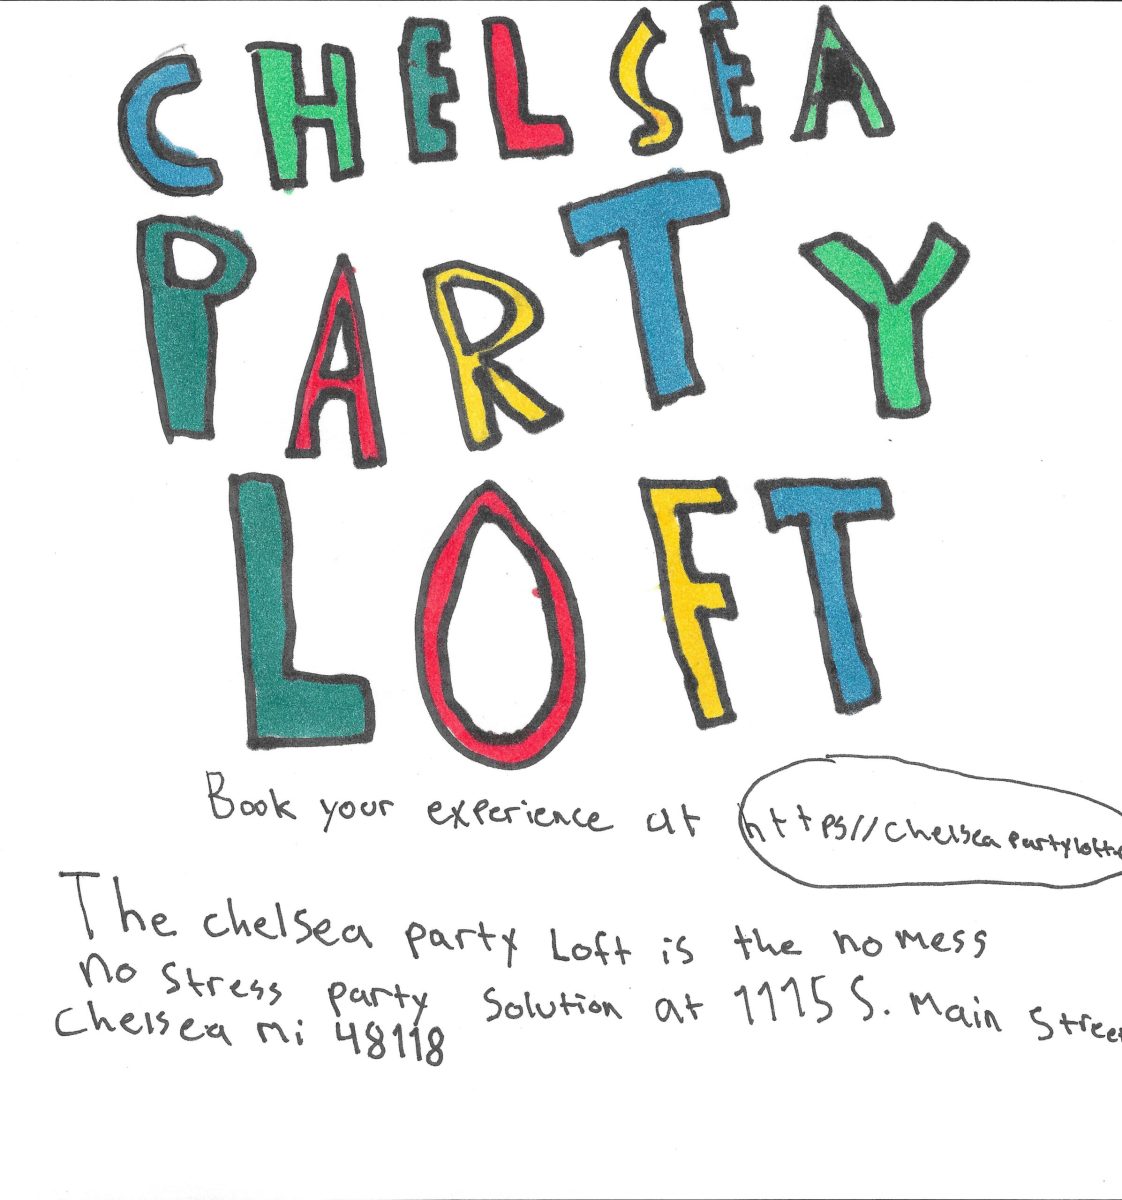 CHELSEA
PARTY
LOFT
Book your experience at https//chelseapartyloft
The chelsea party Loft is the no mess
no stress party solution at 1115 S. Main Street
Chelsea Mi 48118